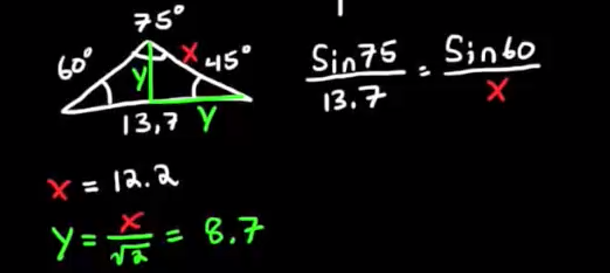 75°
60° x 45°
y
13.7 y
Sin75 / 13.7 = Sin60 / x
x = 12.2
y = x / √2 = 8.7